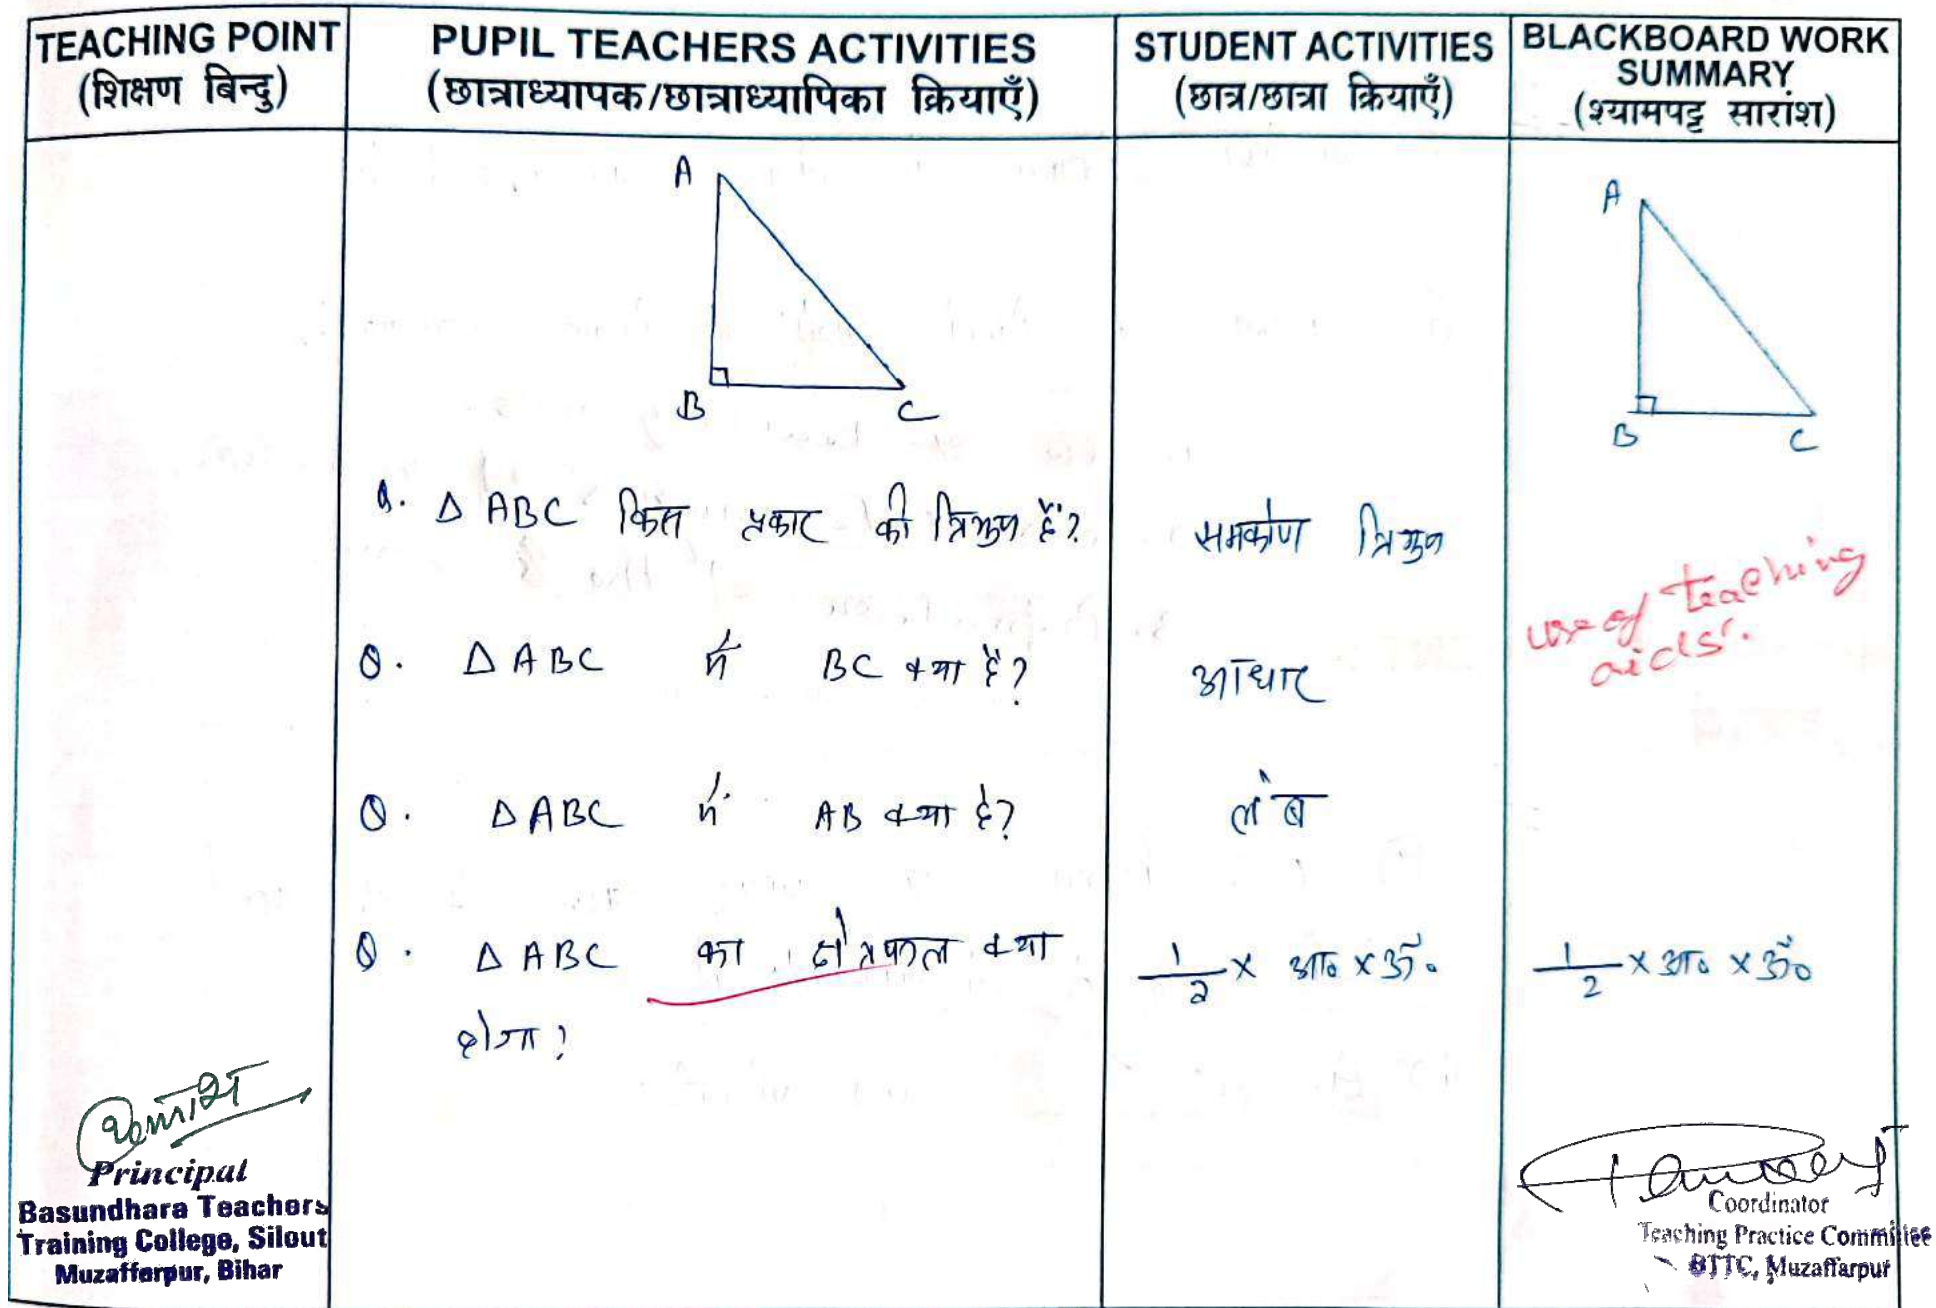 TEACHING POINT
(शिक्षण बिन्दु)
PUPIL TEACHERS ACTIVITIES
(छात्राध्यापक/छात्राध्यापिका क्रियाएँ)
STUDENT ACTIVITIES
(छात्र/छात्रा क्रियाएँ)
BLACKBOARD WORK
SUMMARY
(श्यामपट्ट सारांश)
A
B
C
A
B
C
Q. Δ ABC किस प्रकार की त्रिभुज हैं?
समकोण त्रिभुज
use of teaching
aids'.
Q. Δ ABC में BC क्या है?
आधार
Q. Δ ABC में AB क्या है?
लंब
Q. Δ ABC का क्षेत्रफल क्या
होगा?
1/2 × आ० × ऊँ०
1/2 × आ० × ऊँ०
Principal
Basundhara Teachers
Training College, Silout
Muzafferpur, Bihar
Coordinator
Teaching Practice Committee
BTTC, Muzaffarpur